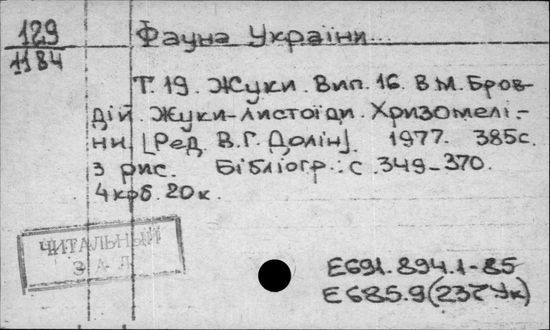 129
1184
Фауна України
Т. 19. Жуки. Вип. 16. В.М. Бров-
дій. Жуки-листоїди. Хризомелі-
ни. [Ред. В.Г. Долін]. 1977. 385с.
з рис. Бібліогр.: с. 349-370.
4 крб. 20 к.
ЧИТАЛЬНЫЙ
ЗАЛ
Е691.894.1-85
Е685.9(237Ук)